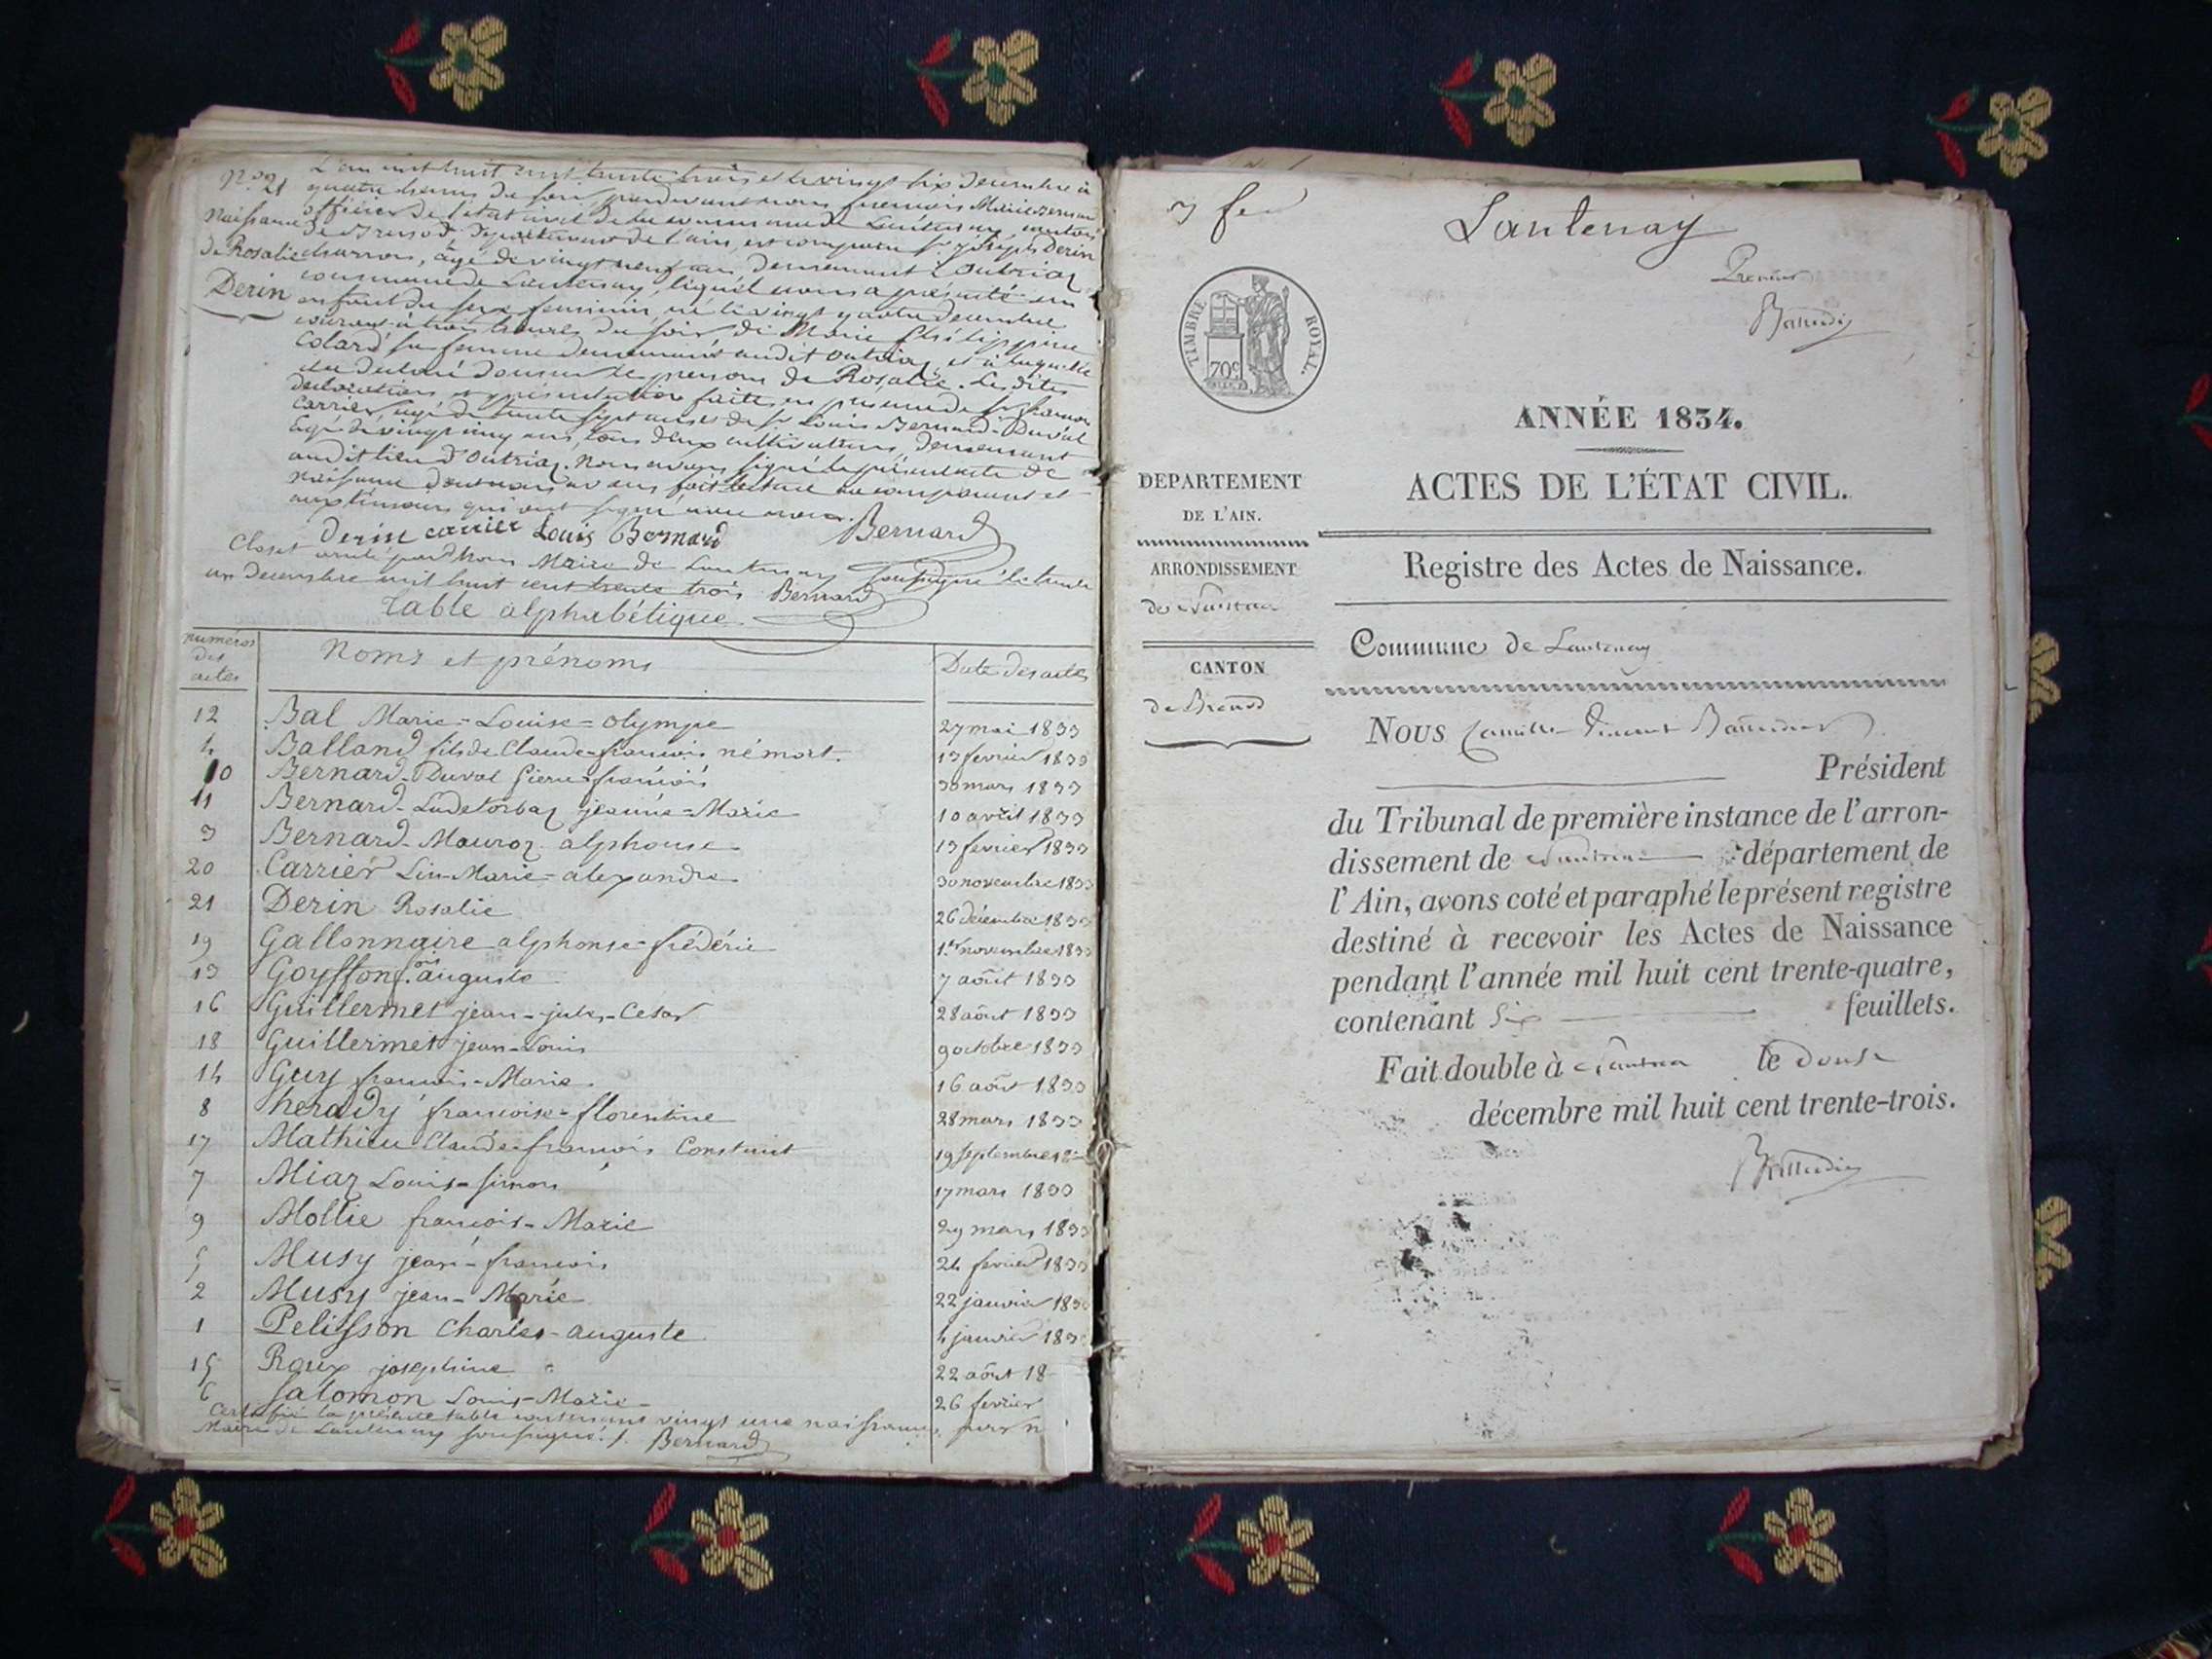 N.º 21
Naissance
de Rosalie
Derin
L'an mil huit cent trente trois et le vingt six decembre à
quatre heures du soir, pardevant nous francois Marie Bernard
officier de l'état civil de la commune de Lantenay, canton
de Brenod département de l'ain, est comparu Sr. joseph Derin
charron, âgé de vingt neuf ans, demeurant à outriaz
commune de Lantenay, lequel nous a présenté un
enfant du sexe feminin, né le vingt quatre decembre
courant à trois heures du soir de Marie Philippine
Colard sa femme demeurant audit outriaz, et à laquelle
il a declaré donner le prenom de Rosalie. Les dites
declaration et présentation faites en présence de
Carrier, agé de trente sept ans et de Sr. Louis Bernard-Duval
agé de vingt cinq ans, tous deux cultivateurs, demeurant
audit lieu d'outriaz. Nous avons signé le présent acte de
naissance dont nous avons fait lecture au comparant et
aux témoins qui ont signé avec nous.
Derin carrier Louis Bernard Bernard
Clos et arreté par Nous Maire de Lantenay soussigné le trente
un decembre mil huit cent trente trois Bernard
Table alphabétique
numéros des actes Noms et prénoms Date des actes
12 Bal Marie=Louise=olympe 27 mai 1833
4 Balland fils de Claude-francois né mort. 13 fevrier 1833
10 Bernard-Duval Pierre-francois 30 mars 1833
11 Bernard-Ludetorbaz jeanne=Marie 10 avril 1833
3 Bernard-Mouroz alphonse 13 fevrier 1833
20 Carrier Lin-Marie=alexandre 30 novembre 1833
21 Derin Rosalie 26 décembre 1833
19 Gallonnaire alphonse-frédéric 1er novembre 1833
13 Goyffon f.ois auguste 7 août 1833
16 Guillermet jean-jules-César 28 aôut 1833
18 Guillermet jean-Louis 9 octobre 1833
14 Guy francois-Marie 16 août 1833
8 herady francoise=florentine 28 mars 1833
17 Mathieu Claude francois Constant 19 septembre 18
7 Miaz Louis=simon 17 mars 1833
9 Mollie françois-Marie 29 mars 1833
5 Musy jean-francois 24 fevrier 1833
2 Musy jean-Marie 22 janvier 183
1 Pelisson Charles-auguste 4 janvier 183
15 Roux josephine 22 aôut 18
6 Salomon Louis-Marie 26 fevrier
Certifié la présente table contenant vingt une naissances, par n
Maire de Lantenay soussigné. Bernard
Lantenay
Premier
TIMBRE ROYAL.
70c
ANNÉE 1834.
DEPARTEMENT
DE L'AIN.
ACTES DE L'ÉTAT CIVIL.
ARRONDISSEMENT
de Nantua
Registre des Actes de Naissance.
CANTON
de Brenod
Commune de Lantenay
Nous Camille Vincent
Président
du Tribunal de première instance de l'arron-
dissement de Nantua département de
l'Ain, avons coté et paraphé le présent registre
destiné à recevoir les Actes de Naissance
pendant l'année mil huit cent trente-quatre,
contenant Six feuillets.
Fait double à Nantua le douse
décembre mil huit cent trente-trois.